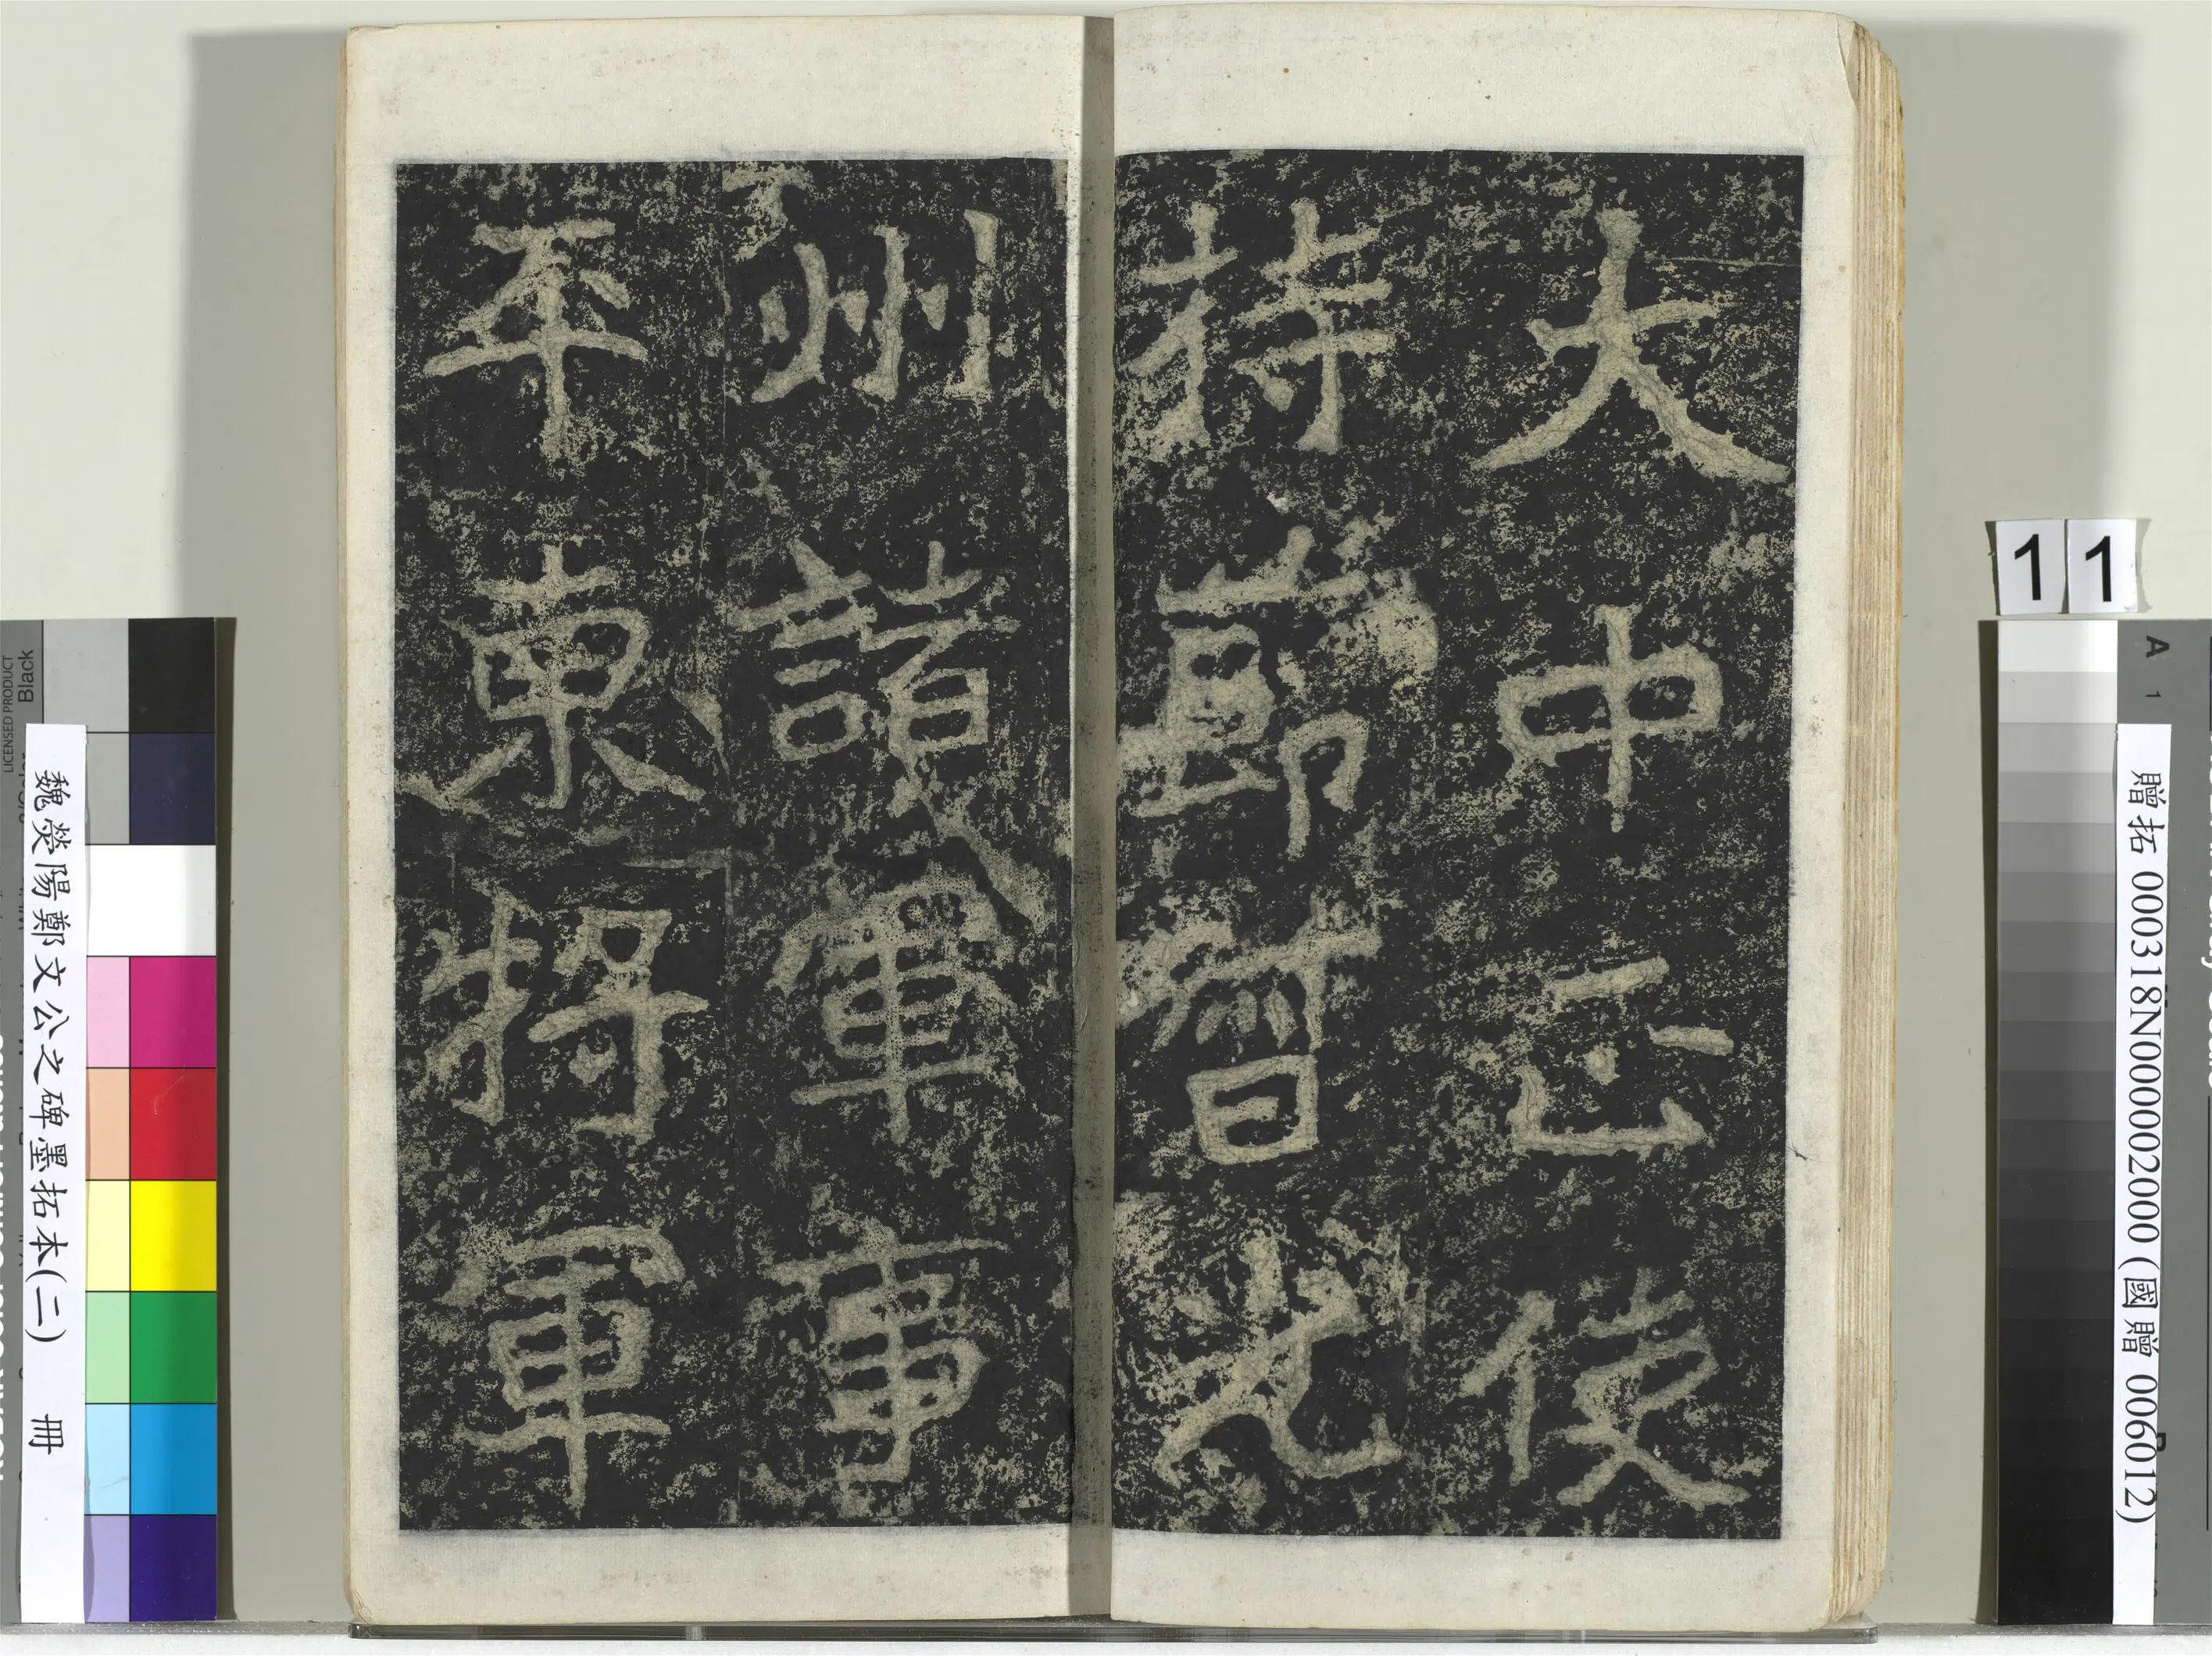 大中正使
持節督光
州諸軍事
平東將軍
11
A 1
贈拓 000318N000002000 (國贈 006012)
LICENSED PRODUCT
Black
魏滎陽鄭文公之碑墨拓本(二) 冊